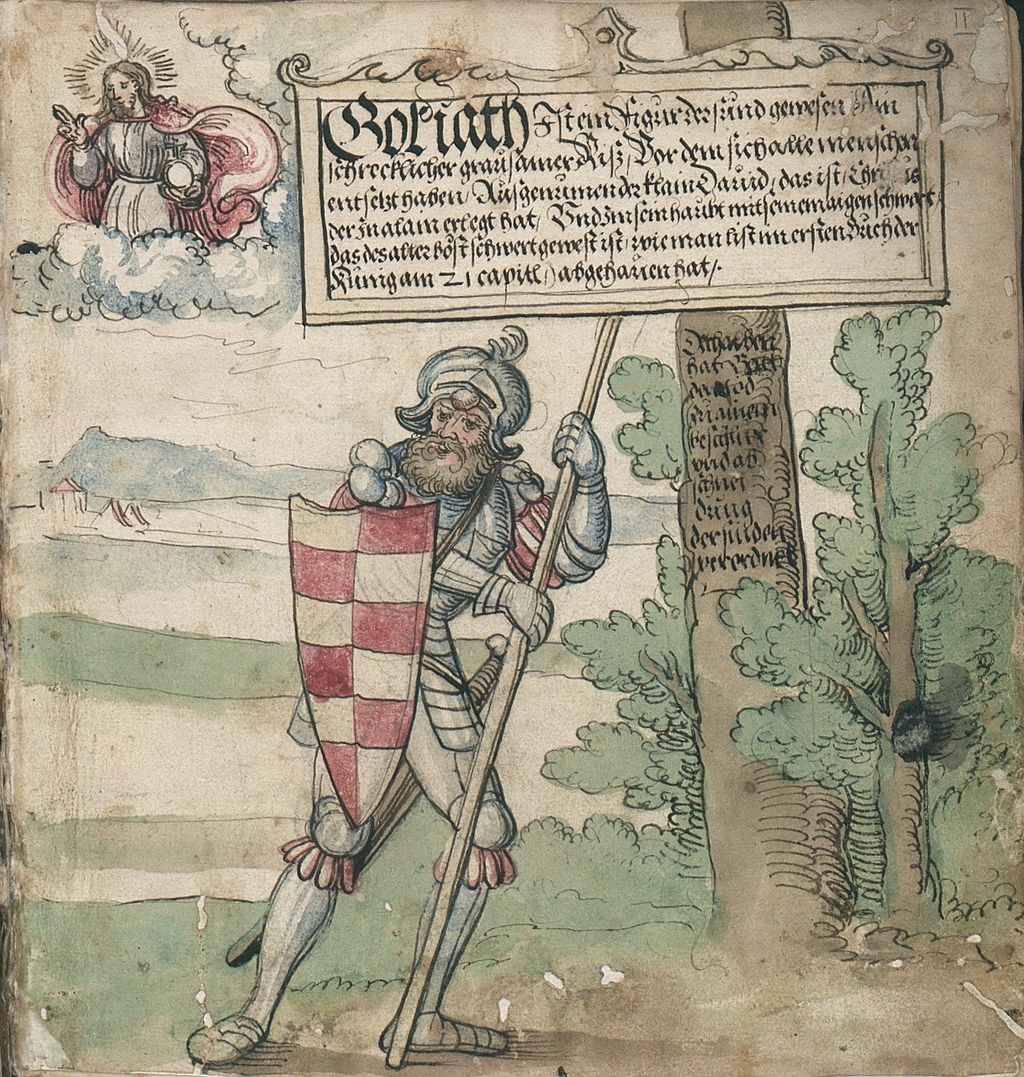 II
Goliath Ist ein Figur der sünd gewesen Ain
schrecklicher grausamer Riß, Vor dem sich alle menschen
entsetzt haben, Ausgenumen der klain Dauid, das ist, Christus
der In alain erlegt hat, Vnd Im sein haubt mit seinem aigen schwert,
das des alter böst schwert gewest ist, wie man list im ersten Buch der
Künig am 21 capitl,) abgehauen hat,.
Derhalben
hat Gott
den tod
zu ainem
beschlus
vnd ab
schnei
dung
der sünden
verordnet